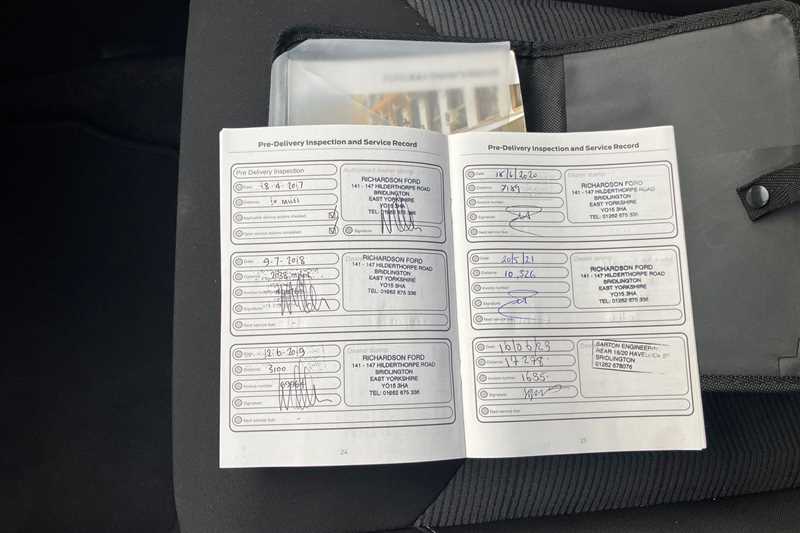 Pre-Delivery Inspection and Service Record
Pre Delivery Inspection
Date 18-4-2017
Distance 10 miles
Applicable service actions checked
Signature
RICHARDSON FORD
141 - 147 HILDERTHORPE ROAD
BRIDLINGTON
EAST YORKSHIRE
YO15 3HA
TEL: 01262 675 336
Date 9-7-2018
Next service due:
RICHARDSON FORD
141 - 147 HILDERTHORPE ROAD
BRIDLINGTON
EAST YORKSHIRE
YO15 3HA
TEL: 01262 675 336
12-6-2019
Distance 3100
Invoice number
Signature
Next service due:
Dealer stamp
RICHARDSON FORD
141 - 147 HILDERTHORPE ROAD
BRIDLINGTON
EAST YORKSHIRE
YO15 3HA
TEL: 01262 675 336
24
Pre-Delivery Inspection and Service Record
Date 18/6/2020
Distance 7189
Invoice number
Signature
Next service due:
Dealer stamp
RICHARDSON FORD
141 - 147 HILDERTHORPE ROAD
BRIDLINGTON
EAST YORKSHIRE
YO15 3HA
TEL: 01262 675 336
Date 20/5/21
Distance 10,526
Invoice number
Signature
Next service due:
Dealer stamp
RICHARDSON FORD
141 - 147 HILDERTHORPE ROAD
BRIDLINGTON
EAST YORKSHIRE
YO15 3HA
TEL: 01262 675 336
Date 16/06/23
Distance 17278.
Invoice number 1635.
Signature
Next service due:
BARTON ENGINEERING
REAR 18/20 HAVELOCK ST
BRIDLINGTON
01262 678076
25